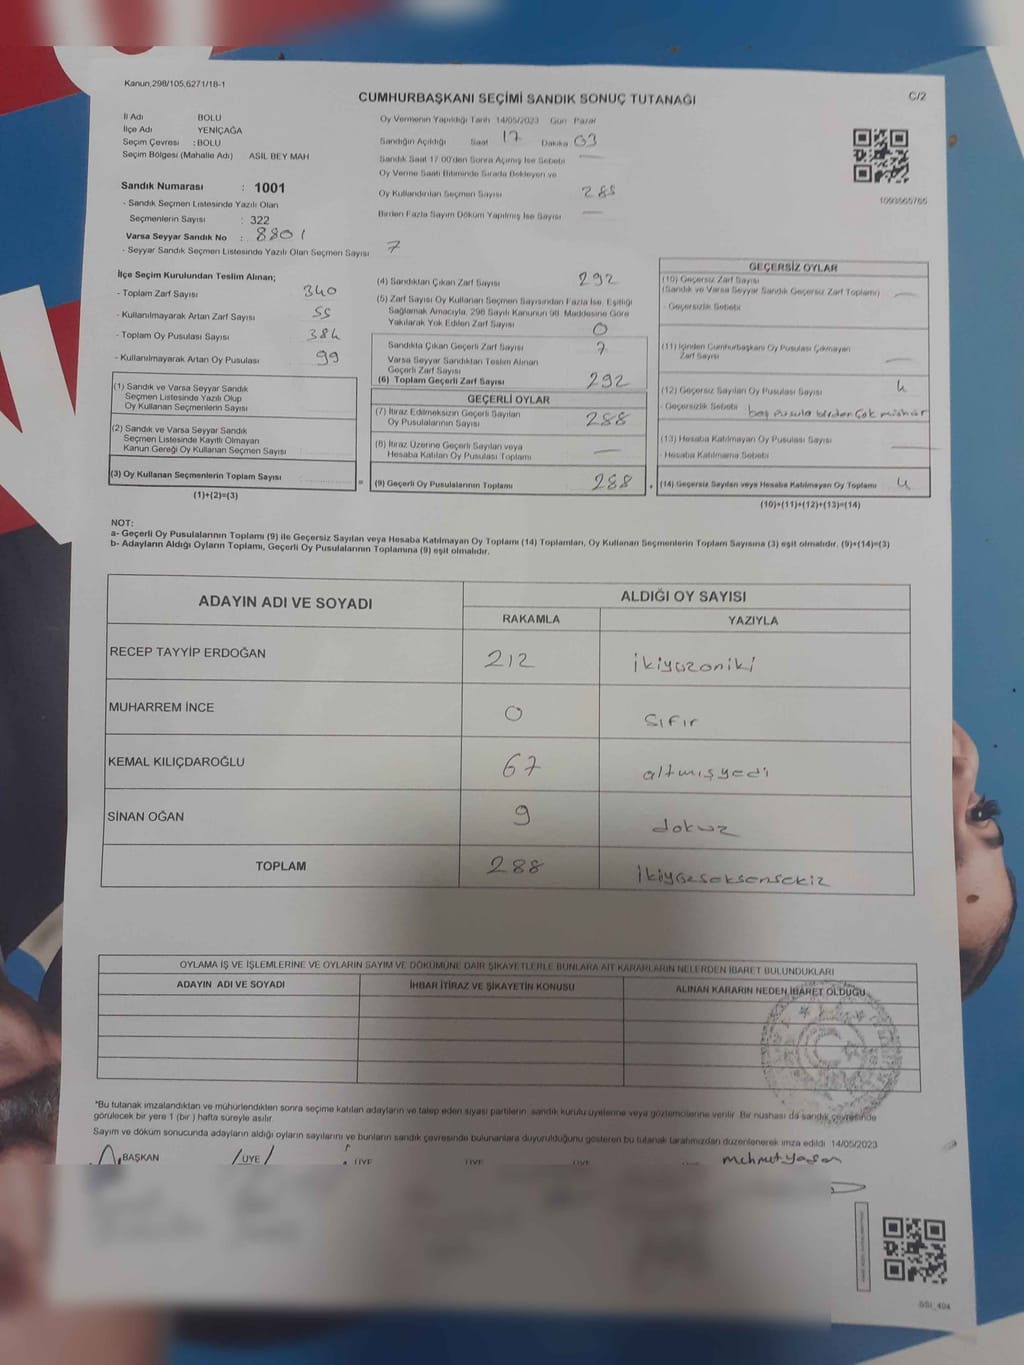 Kanun,298/105,6271/18-1
C/2
CUMHURBAŞKANI SEÇİMİ SANDIK SONUÇ TUTANAĞI
İl Adı BOLU
İlçe Adı YENİÇAĞA
Seçim Çevresi : BOLU
Seçim Bölgesi (Mahalle Adı) ASIL BEY MAH
Sandık Numarası : 1001
- Sandık Seçmen Listesinde Yazılı Olan
Seçmenlerin Sayısı : 322
Varsa Seyyar Sandık No : 8801
- Seyyar Sandık Seçmen Listesinde Yazılı Olan Seçmen Sayısı 7
Oy Vermenin Yapıldığı Tarih 14/05/2023 Gün Pazar
Sandığın Açıldığı Saat 17 Dakika 03
Sandık Saat 17.00'den Sonra Açılmış İse Sebebi —
Oy Verme Saati Bitiminde Sırada Bekleyen ve
Oy Kullandırılan Seçmen Sayısı 285
Birden Fazla Sayım Döküm Yapılmış İse Sayısı —
1093565765
İlçe Seçim Kurulundan Teslim Alınan;
- Toplam Zarf Sayısı 340
- Kullanılmayarak Artan Zarf Sayısı 55
- Toplam Oy Pusulası Sayısı 384
- Kullanılmayarak Artan Oy Pusulası 99
(1) Sandık ve Varsa Seyyar Sandık
Seçmen Listesinde Yazılı Olup
Oy Kullanan Seçmenlerin Sayısı
(2) Sandık ve Varsa Seyyar Sandık
Seçmen Listesinde Kayıtlı Olmayan
Kanun Gereği Oy Kullanan Seçmen Sayısı
(3) Oy Kullanan Seçmenlerin Toplam Sayısı
(1)+(2)=(3)
(4) Sandıktan Çıkan Zarf Sayısı 292
(5) Zarf Sayısı Oy Kullanan Seçmen Sayısından Fazla İse, Eşitliği
Sağlamak Amacıyla, 298 Sayılı Kanunun 98. Maddesine Göre
Yakılarak Yok Edilen Zarf Sayısı 0
Sandıkta Çıkan Geçerli Zarf Sayısı 7
Varsa Seyyar Sandıktan Teslim Alınan
Geçerli Zarf Sayısı
(6) Toplam Geçerli Zarf Sayısı 292
GEÇERLİ OYLAR
(7) İtiraz Edilmeksizin Geçerli Sayılan
Oy Pusulalarının Sayısı 288
(8) İtiraz Üzerine Geçerli Sayılan veya
Hesaba Katılan Oy Pusulası Toplamı —
= (9) Geçerli Oy Pusulalarının Toplamı 288
GEÇERSİZ OYLAR
(10) Geçersiz Zarf Sayısı
(Sandık ve Varsa Seyyar Sandık Geçersiz Zarf Toplamı) —
- Geçersizlik Sebebi
(11) İçinden Cumhurbaşkanı Oy Pusulası Çıkmayan
Zarf Sayısı —
(12) Geçersiz Sayılan Oy Pusulası Sayısı 4
- Geçersizlik Sebebi boş pusula birden çok mühür
(13) Hesaba Katılmayan Oy Pusulası Sayısı —
- Hesaba Katılmama Sebebi
+ (14) Geçersiz Sayılan veya Hesaba Katılmayan Oy Toplamı 4
(10)+(11)+(12)+(13)=(14)
NOT:
a- Geçerli Oy Pusulalarının Toplamı (9) ile Geçersiz Sayılan veya Hesaba Katılmayan Oy Toplamı (14) Toplamları, Oy Kullanan Seçmenlerin Toplam Sayısına (3) eşit olmalıdır. (9)+(14)=(3)
b- Adayların Aldığı Oyların Toplamı, Geçerli Oy Pusulalarının Toplamına (9) eşit olmalıdır.
ADAYIN ADI VE SOYADI ALDIĞI OY SAYISI
RAKAMLA YAZIYLA
RECEP TAYYİP ERDOĞAN 212 ikiyüzoniki
MUHARREM İNCE 0 sıfır
KEMAL KILIÇDAROĞLU 67 altmışyedi
SİNAN OĞAN 9 dokuz
TOPLAM 288 ikiyüzseksensekiz
OYLAMA İŞ VE İŞLEMLERİNE VE OYLARIN SAYIM VE DÖKÜMÜNE DAİR ŞİKAYETLERLE BUNLARA AİT KARARLARIN NELERDEN İBARET BULUNDUKLARI
ADAYIN ADI VE SOYADI İHBAR İTİRAZ VE ŞİKAYETİN KONUSU ALINAN KARARIN NEDEN İBARET OLDUĞU
*Bu tutanak imzalandıktan ve mühürlendikten sonra seçime katılan adayların ve talep eden siyasi partilerin sandık kurulu üyelerine veya gözlemcilerine verilir. Bir nüshası da sandık çevresinde
görülecek bir yere 1 (bir ) hafta süreyle asılır.
Sayım ve döküm sonucunda adayların aldığı oyların sayılarını ve bunların sandık çevresinde bulunanlara duyurulduğunu gösteren bu tutanak tarafımızdan düzenlenerek imza edildi 14/05/2023
BAŞKAN ÜYE ÜYE ÜYE ÜYE mehmet yaşar
SSI_404